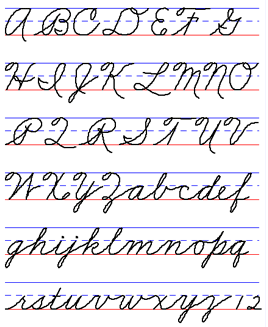 A B C D E F G
H I J K L M N O
P Q R S T U V
W X Y Z a b c d e f
g h i j k l m n o p q
r s t u v w x y z 1 2